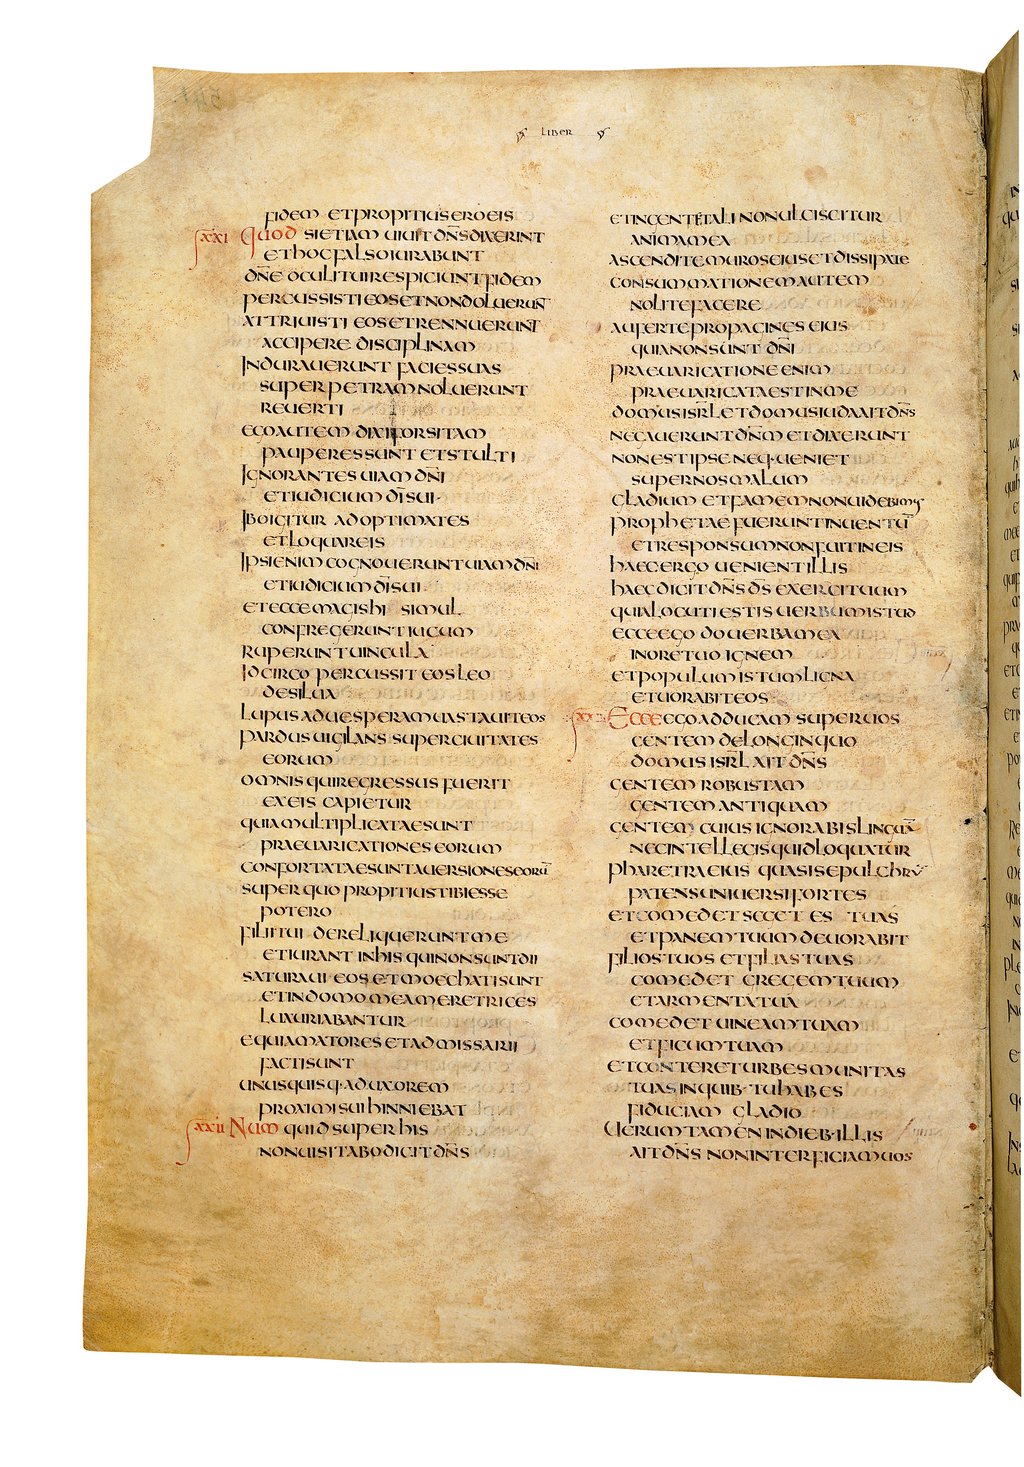 LIBER
fidem et propitius ero eis
xxi Quod si etiam uiuit dn̄s dixerint
et hoc falso iurabunt
dn̄e oculi tui respiciunt fidem
percussisti eos et non doluerunt
attriuisti eos et rennuerunt
accipere disciplinam
Indurauerunt facies suas
super petram noluerunt
reuerti
ego autem dixi forsitam
pauperes sunt et stulti
Ignorantes uiam dn̄i
et iudicium dī sui
Ibo igitur ad optimates
et loquar eis
Ipsi enim cognouerunt uiam dn̄i
et iudicium dī sui
et ecce magis hi simul
confregerunt iugum
ruperunt uincula
Idcirco percussit eos leo
de silua
Lupus ad uesperam uastauit eos
pardus uigilans super ciuitates
eorum
omnis qui egressus fuerit
ex eis capietur
quia multiplicatae sunt
praeuaricationes eorum
confortatae sunt auersiones eorū
super quo propitius tibi esse
potero
filii tui dereliquerunt me
et iurant in his qui non sunt dii
saturaui eos et moechati sunt
et in domo meretrices
luxuriabantur
equi amatores et admissarii
facti sunt
unusquisq· ad uxorem
proximi sui hinniebat
xxii Numquid super his
non uisitabo dicit dn̄s
et in gente tali non ulciscitur
anima mea
ascendite muros eius et dissipate
consummationem autem
nolite facere
auferte propagines eius
quia non sunt dn̄i
praeuaricatione enim
praeuaricata est in me
domus isr̄l et domus iuda ait dn̄s
negauerunt dn̄m et dixerunt
non est ipse neq· ueniet
super nos malum
gladium et famem non uidebimus
prophetae fuerunt in uentū
et responsum non fuit in eis
haec ergo uenient illis
haec dicit dn̄s d̄s exercituum
quia locuti estis uerbum istud
ecce ego do uerba mea
in ore tuo ignem
et populum istum ligna
et uorabit eos
Ecce ego adducam super uos
gentem de longinquo
domus isr̄l ait dn̄s
gentem robustam
gentem antiquam
gentem cuius ignorabis linguā
nec intelleges quid loquatur
pharetra eius quasi sepulchrū
patens uniuersi fortes
et comedet segetes tuas
et panem tuum deuorabit
filios tuos et filias tuas
comedet gregem tuum
et armenta tua
comedet uineam tuam
et ficum tuam
et conteret urbes munitas
tuas in quib· tu habes
fiduciam gladio
Uerumtamen in dieb· illis
ait dn̄s non interficiam uos